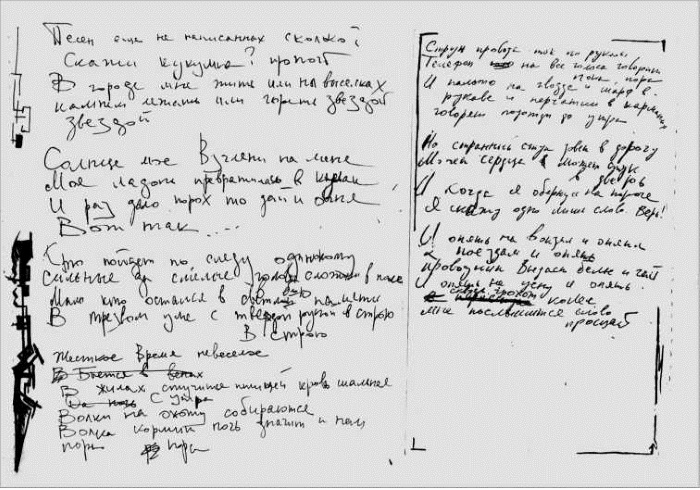 Песен еще не написанных сколько?
Скажи кукушка? пропой
В городе мне жить или на выселках
камнем лежать или гореть звездой
звездой
Солнце мое Взгляни на меня
Моя ладонь превратилась в кулак
И раз дело порох то дай и огня
Вот так....
Кто пойдет по следу одинокому
сильные да смелые головы сложили в поле
в бою
Мало кто остался в светлой памяти
В трезвом уме с твердой рукой в строю
В строю
Жесткое Время невеселое
Бьется в венах
В жилах стучится птицей кровь шальная
С утра
Волки на охоту собираются
Волка кормит ночь значит и нам
пора пора
Струн провода ток по рукам
Телефон на все голоса говорит
пока, пора
И пальто на гвозде и шарф в
рукаве и перчатки в карманах
говорят подожди до утра
Но странный стук зовет в дорогу
Может сердца а может стук
в дверь
И когда я обернусь на пороге
Я скажу одно лишь слово. Верь!
И опять на вокзал и опять
к поездам и опять
проводник Выдаст белье и чай
И опять не усну и опять
сквозь грохот
колес
Мне послышится слово
прощай